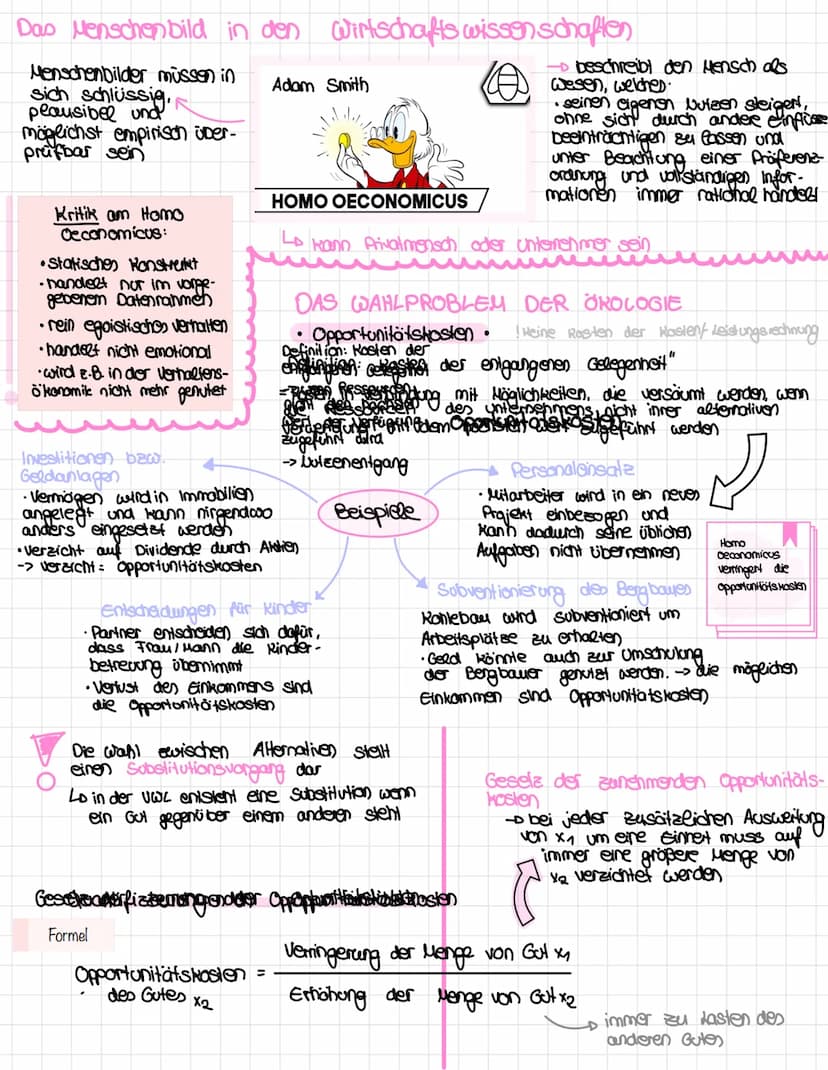 Das Menschenbild in den Wirtschaftswissenschaften
Menschenbilder müssen in
sich schlüssig,
plausibel und
möglichst empirisch über-
prüfbar sein
Adam Smith
HOMO OECONOMICUS
→ beschreibt den Mensch als
Wesen, welches:
• seinen eigenen Nutzen steigert,
ohne sich durch andere Einflüsse
beeinträchtigen zu lassen und
unter Beachtung einer Präferenz-
ordnung und vollständigen Infor-
mationen immer rational handelt
↳ kann Privatmensch oder Unternehmer sein
Kritik am Homo
Oeconomicus:
• statisches Konstrukt
• handelt nur im vorge-
gebenem Datenrahmen
• rein egoistisches Verhalten
• handelt nicht emotional
• wird z.B. in der Verhaltens-
ökonomik nicht mehr genutzt
DAS WAHLPROBLEM DER ÖKOLOGIE
• Opportunitätskosten •
!Keine Kosten der Kosten/Leistungsrechnung
Definition: Kosten der
der entgangenen Gelegenheit"
mit Möglichkeiten, die versäumt werden, wenn
des Unternehmens nicht ihrer alternativen
zugeführt werden
zugeführt wird
-> Nutzenentgang
Beispiele
Investitionen bzw.
Geldanlagen
• Vermögen wird in Immobilien
angelegt und kann nirgendwo
anders eingesetzt werden
• Verzicht auf Dividende durch Aktien
-> Verzicht = Opportunitätskosten
Personaleinsatz
• Mitarbeiter wird in ein neues
Projekt einbezogen und
kann dadurch seine üblichen
Aufgaben nicht übernehmen
Homo
Oeconomicus
verringert die
Opportunitätskosten
Entscheidungen für Kinder
• Partner entscheiden sich dafür,
dass Frau/Mann die Kinder-
betreuung übernimmt
• Verlust des Einkommens sind
die Opportunitätskosten
Subventionierung des Bergbaues
Kohlebau wird subventioniert um
Arbeitsplätze zu erhalten
• Geld könnte auch zur Umschulung
der Bergbauer genutzt werden. -> die möglichen
Einkommen sind Opportunitätskosten
Die Wahl zwischen Alternativen stellt
einen Substitutionsvorgang dar
↳ in der VWL entsteht eine Substitution wenn
ein Gut gegenüber einem anderen steht
Gesetz der zunehmenden Opportunitäts-
kosten
→ bei jeder zusätzlichen Ausweitung
von x1 um eine Einheit muss auf
immer eine größere Menge von
x2 verzichtet werden
Formel
Opportunitätskosten = Verringerung der Menge von Gut x1
des Gutes x2
Erhöhung der Menge von Gut x2
→ immer zu Lasten des
anderen Gutes